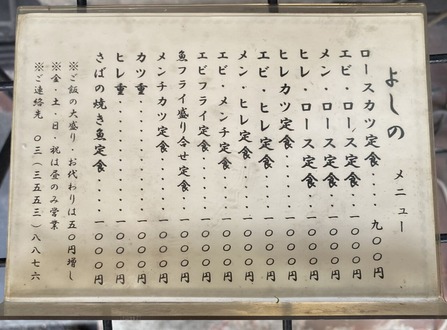 よしの メニュー
ロースカツ定食・・・・九〇〇円
エビ・ロース定食・・・一〇〇〇円
メン・ロース定食・・・一〇〇〇円
ヒレ・ロース定食・・・一〇〇〇円
ヒレカツ定食・・・・・一〇〇〇円
エビ・ヒレ定食・・・・一〇〇〇円
メン・ヒレ定食・・・・一〇〇〇円
エビ・メンチ定食・・・一〇〇〇円
エビフライ定食・・・・一〇〇〇円
魚フライ盛り合せ定食・・一〇〇〇円
メンチカツ定食・・・・一〇〇〇円
カツ重・・・・・・・・一〇〇〇円
ヒレ重・・・・・・・・一〇〇〇円
さばの焼き魚定食・・・一〇〇〇円
※ご飯の大盛り・お代わりは五〇円増し
※金・土・日・祝は昼のみ営業
※ご連絡先 〇三(三五五三)八八七六